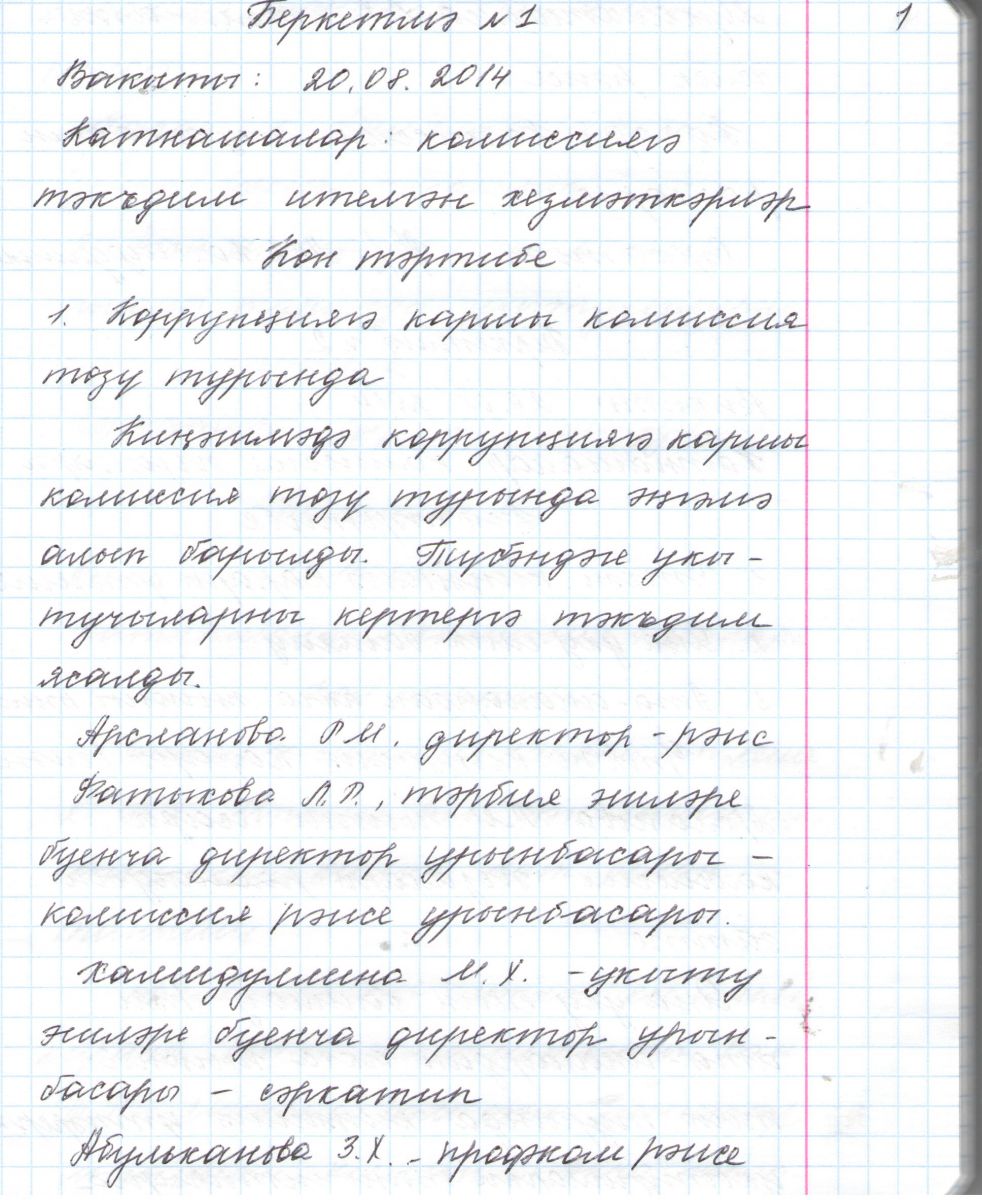 Беркетмә №1
1
Вакыты: 20.08.2014
Катнашалар: комиссиягә
тәкъдим ителгән хезмәткәрләр
Көн тәртибе
1. Коррупциягә каршы комиссия
төзү турында
Киңәшмәдә коррупциягә каршы
комиссия төзү турында әңгәмә
алып барылды. Түбәндәге укы-
тучыларны кертергә тәкъдим
ясалды.
Арсланова Р.М. директор - рәис
Фатыхова Л.Р., тәрбия эшләре
буенча директор урынбасары -
комиссия рәисе урынбасары.
Хамидуллина М.Х. - укыту
эшләре буенча директор урын-
басары - сәркатип
Абульханова З.Х. - профком рәисе